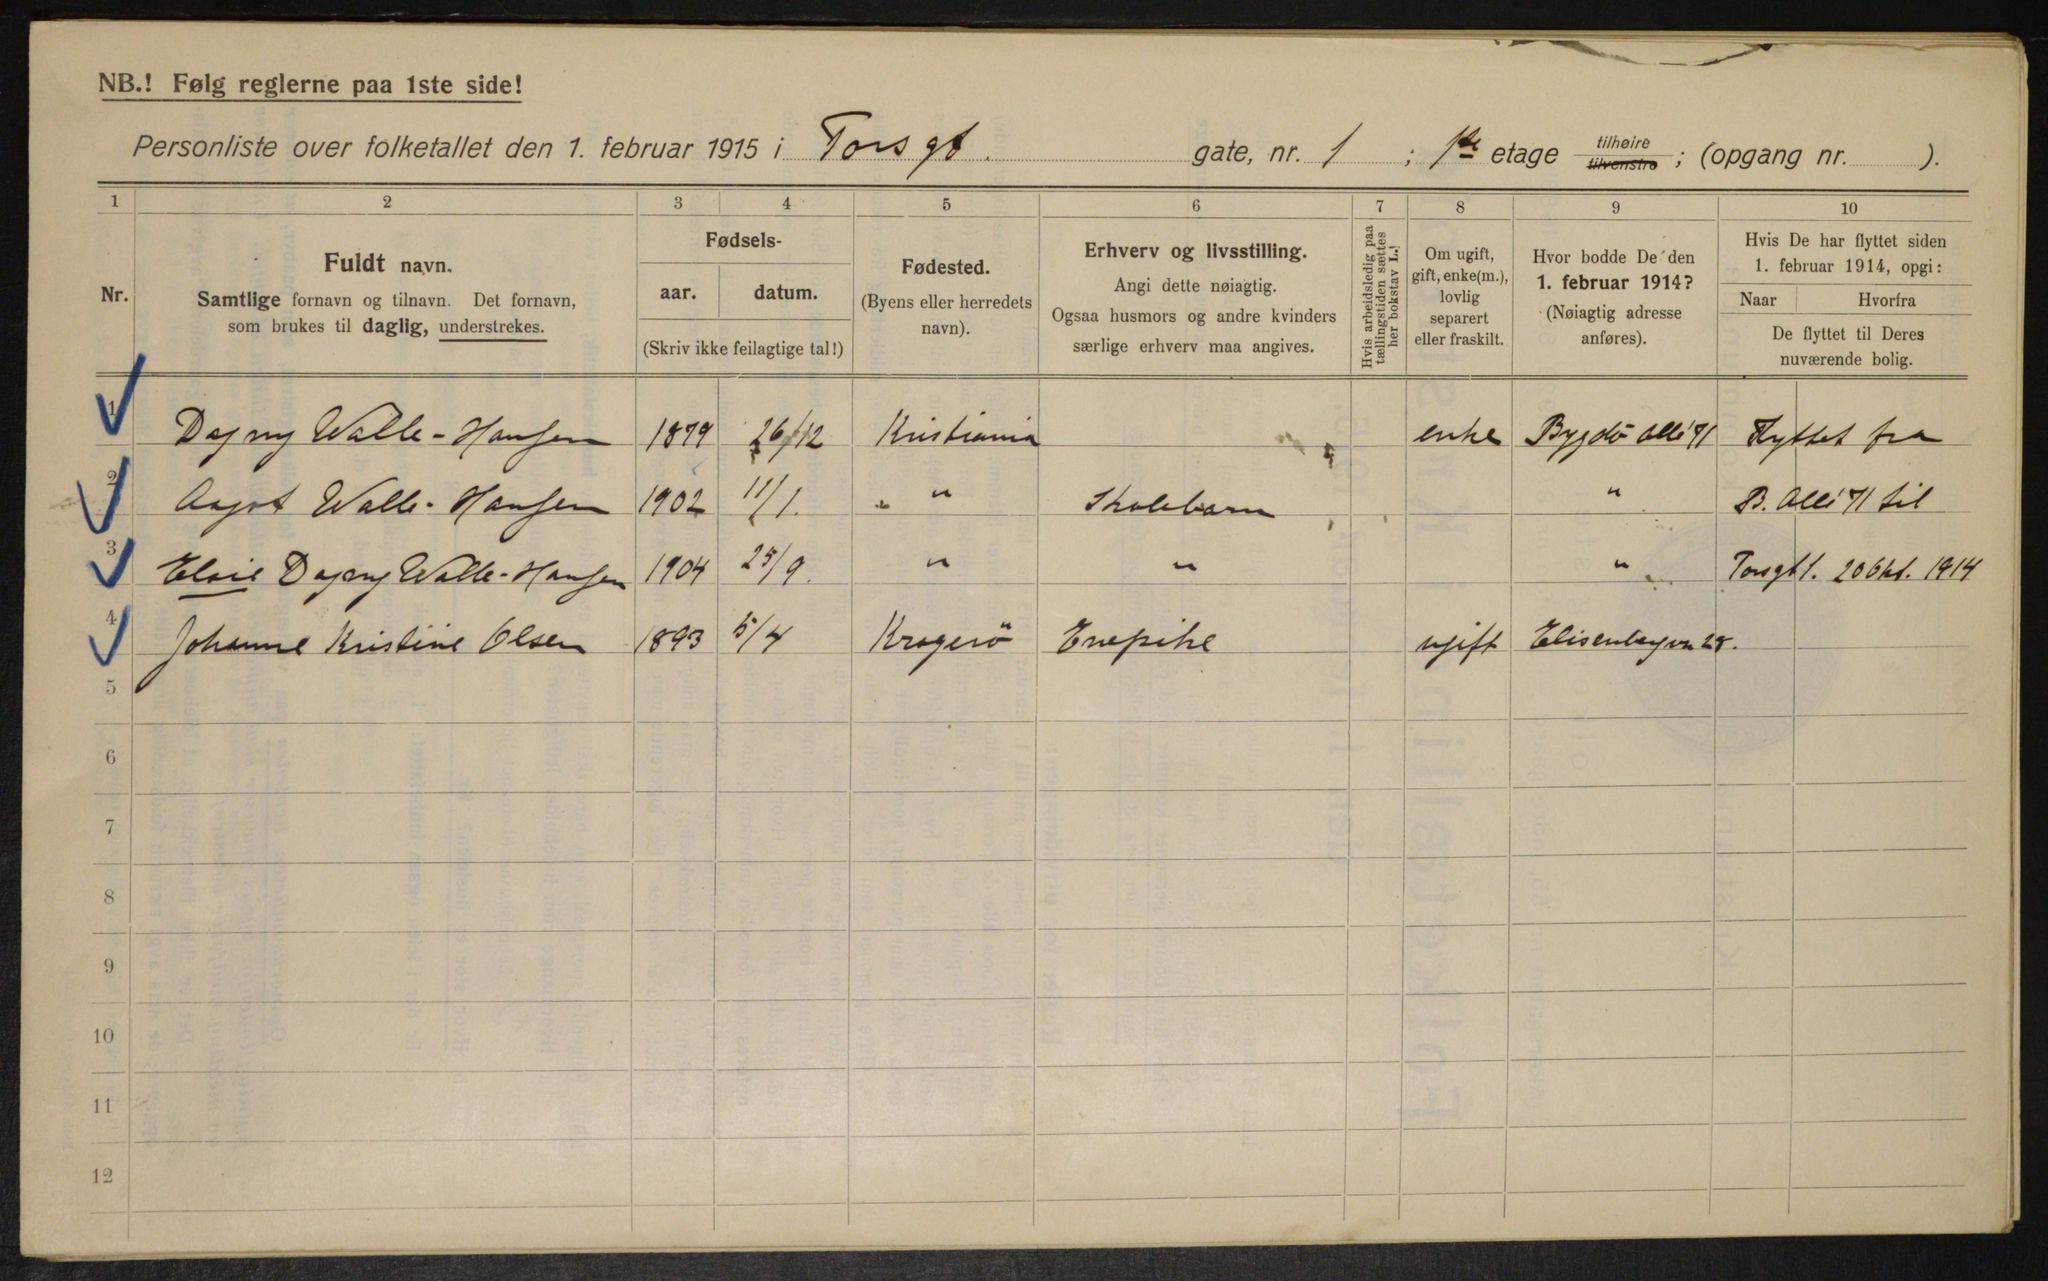 NB.! Følg reglerne paa 1ste side!
Personliste over folketallet den 1. februar 1915 i Torsgt. gate, nr. 1 ; 1ste etage tilhøire tilvenstre ; (opgang nr. ).
1 2 3 4 5 6 7 8 9 10
Nr.
Fuldt navn.
Samtlige fornavn og tilnavn. Det fornavn,
som brukes til daglig, understrekes.
Fødsels-
aar. datum.
(Skriv ikke feilagtige tal!)
Fødested.
(Byens eller herredets
navn).
Erhverv og livsstilling.
Angi dette nøiagtig.
Ogsaa husmors og andre kvinders
særlige erhverv maa angives.
Hvis arbeidsledig paa
tællingstiden sættes
her bokstav L.!
Om ugift,
gift, enke(m.),
lovlig
separert
eller fraskilt.
Hvor bodde De den
1. februar 1914?
(Nøiagtig adresse
anføres).
Hvis De har flyttet siden
1. februar 1914, opgi:
Naar Hvorfra
De flyttet til Deres
nuværende bolig.
1 Dagny Walle-Hansen 1879 26/12 Kristiania enke Bygdö Allé 71 Flyttet fra
2 Aagot Walle-Hansen 1902 11/1. " Skolebarn " B. Allé 71 til
3 Elsie Dagny Walle-Hansen 1904 25/9. " " " Torsgt 1. 20 Okt. 1914
4 Johanne Kristine Olsen 1893 5/4 Kragerö Enepike ugift Elisenbergvn 28.
5
6
7
8
9
10
11
12